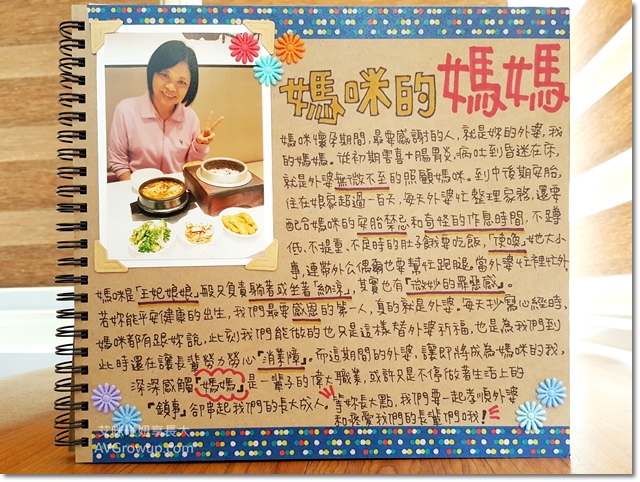 媽咪的媽媽
媽咪懷孕期間,最要感謝的人,就是妳的外婆,我
的媽媽。從初期害喜+腸胃炎,病吐到昏迷在床,
就是外婆無微不至的照顧媽咪。到中後期安胎,
住在娘家超過一百天,每天外婆忙整理家務,還要
配合媽咪的安胎禁忌和奇怪的作息時間,不蹲
低、不提重、不定時的肚子餓要吃飯,「使喚」她大小
事,連帶外公偶爾也要幫忙跑腿。當外婆忙裡忙外,
媽咪是「王妃娘娘」般又負責躺著或坐著「納涼」,其實也有「微妙的罪惡感」。
若妳能平安健康的出生,我們最要感恩的第一人,真的就是外婆。每天抄寫心經時,
媽咪都有跟妳說,此刻我們能做的也只是這樣替外婆祈福,也是為我們到
此時還在讓長輩勞力勞心「消業障」。而這期間的外婆,讓即將成為媽咪的我,
深深感觸「媽媽」是一輩子的偉大職業,或許只是不停做著生活上的
「鎖事」卻串起我們的長大成人。等妳長大點,我們要一起孝順外婆
和疼愛我們的長輩們哦!
AVGrowup.com